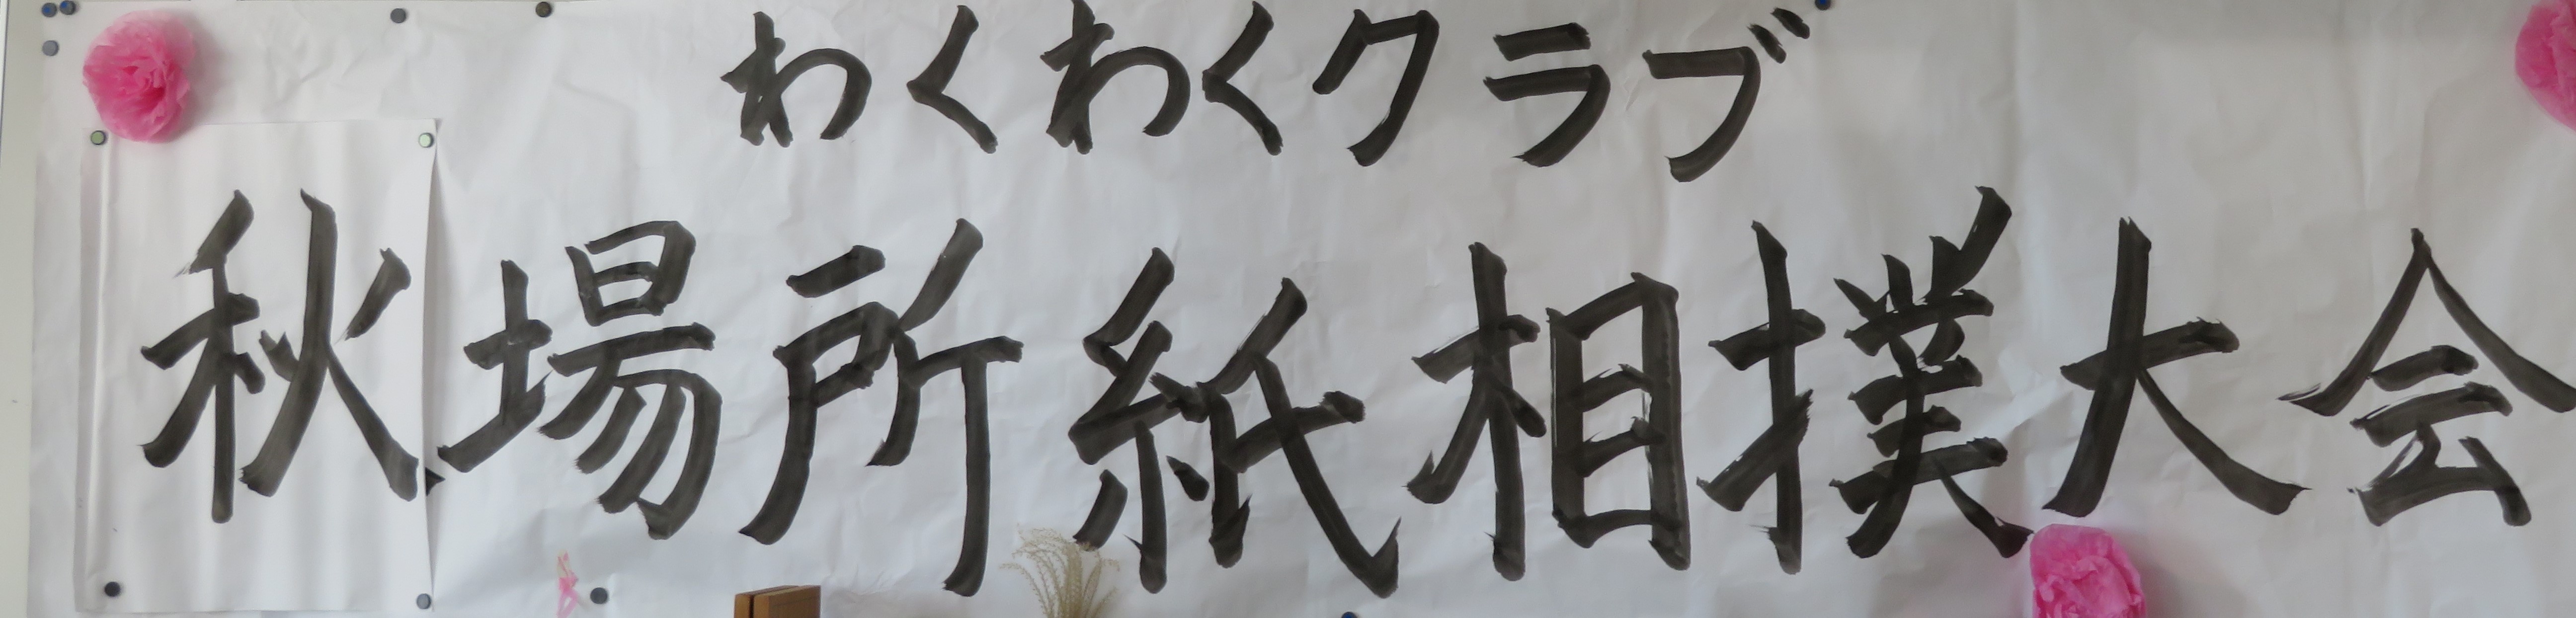 わくわくクラブ
秋場所紙相撲大会